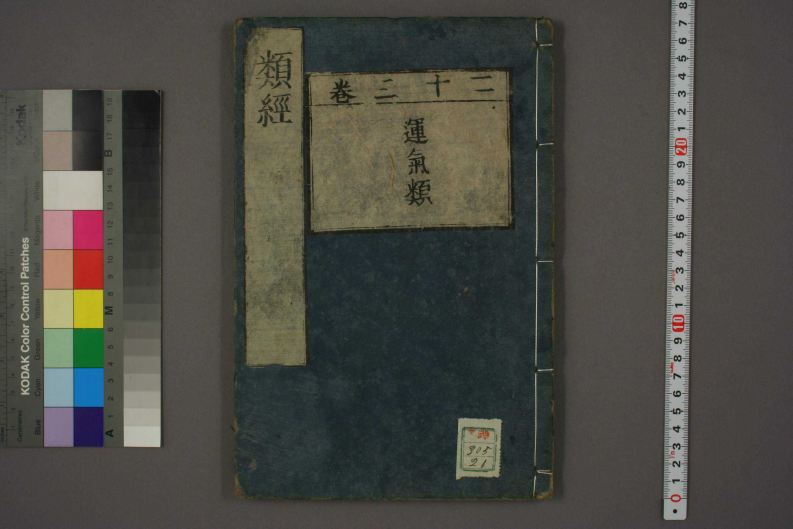 類經
二十三卷
運氣類
21
Kodak
KODAK Color Control Patches
Blue
Cyan
Green
Yellow
Red
Magenta
White
A 1 2 3 4 5 6 M 8 9 10 11 12 13 14 15 B 17 18 19
0 1 2 3 4 5 6 7 8 9 10 1 2 3 4 5 6 7 8 9 20 1 2 3 4 5 6 7 8